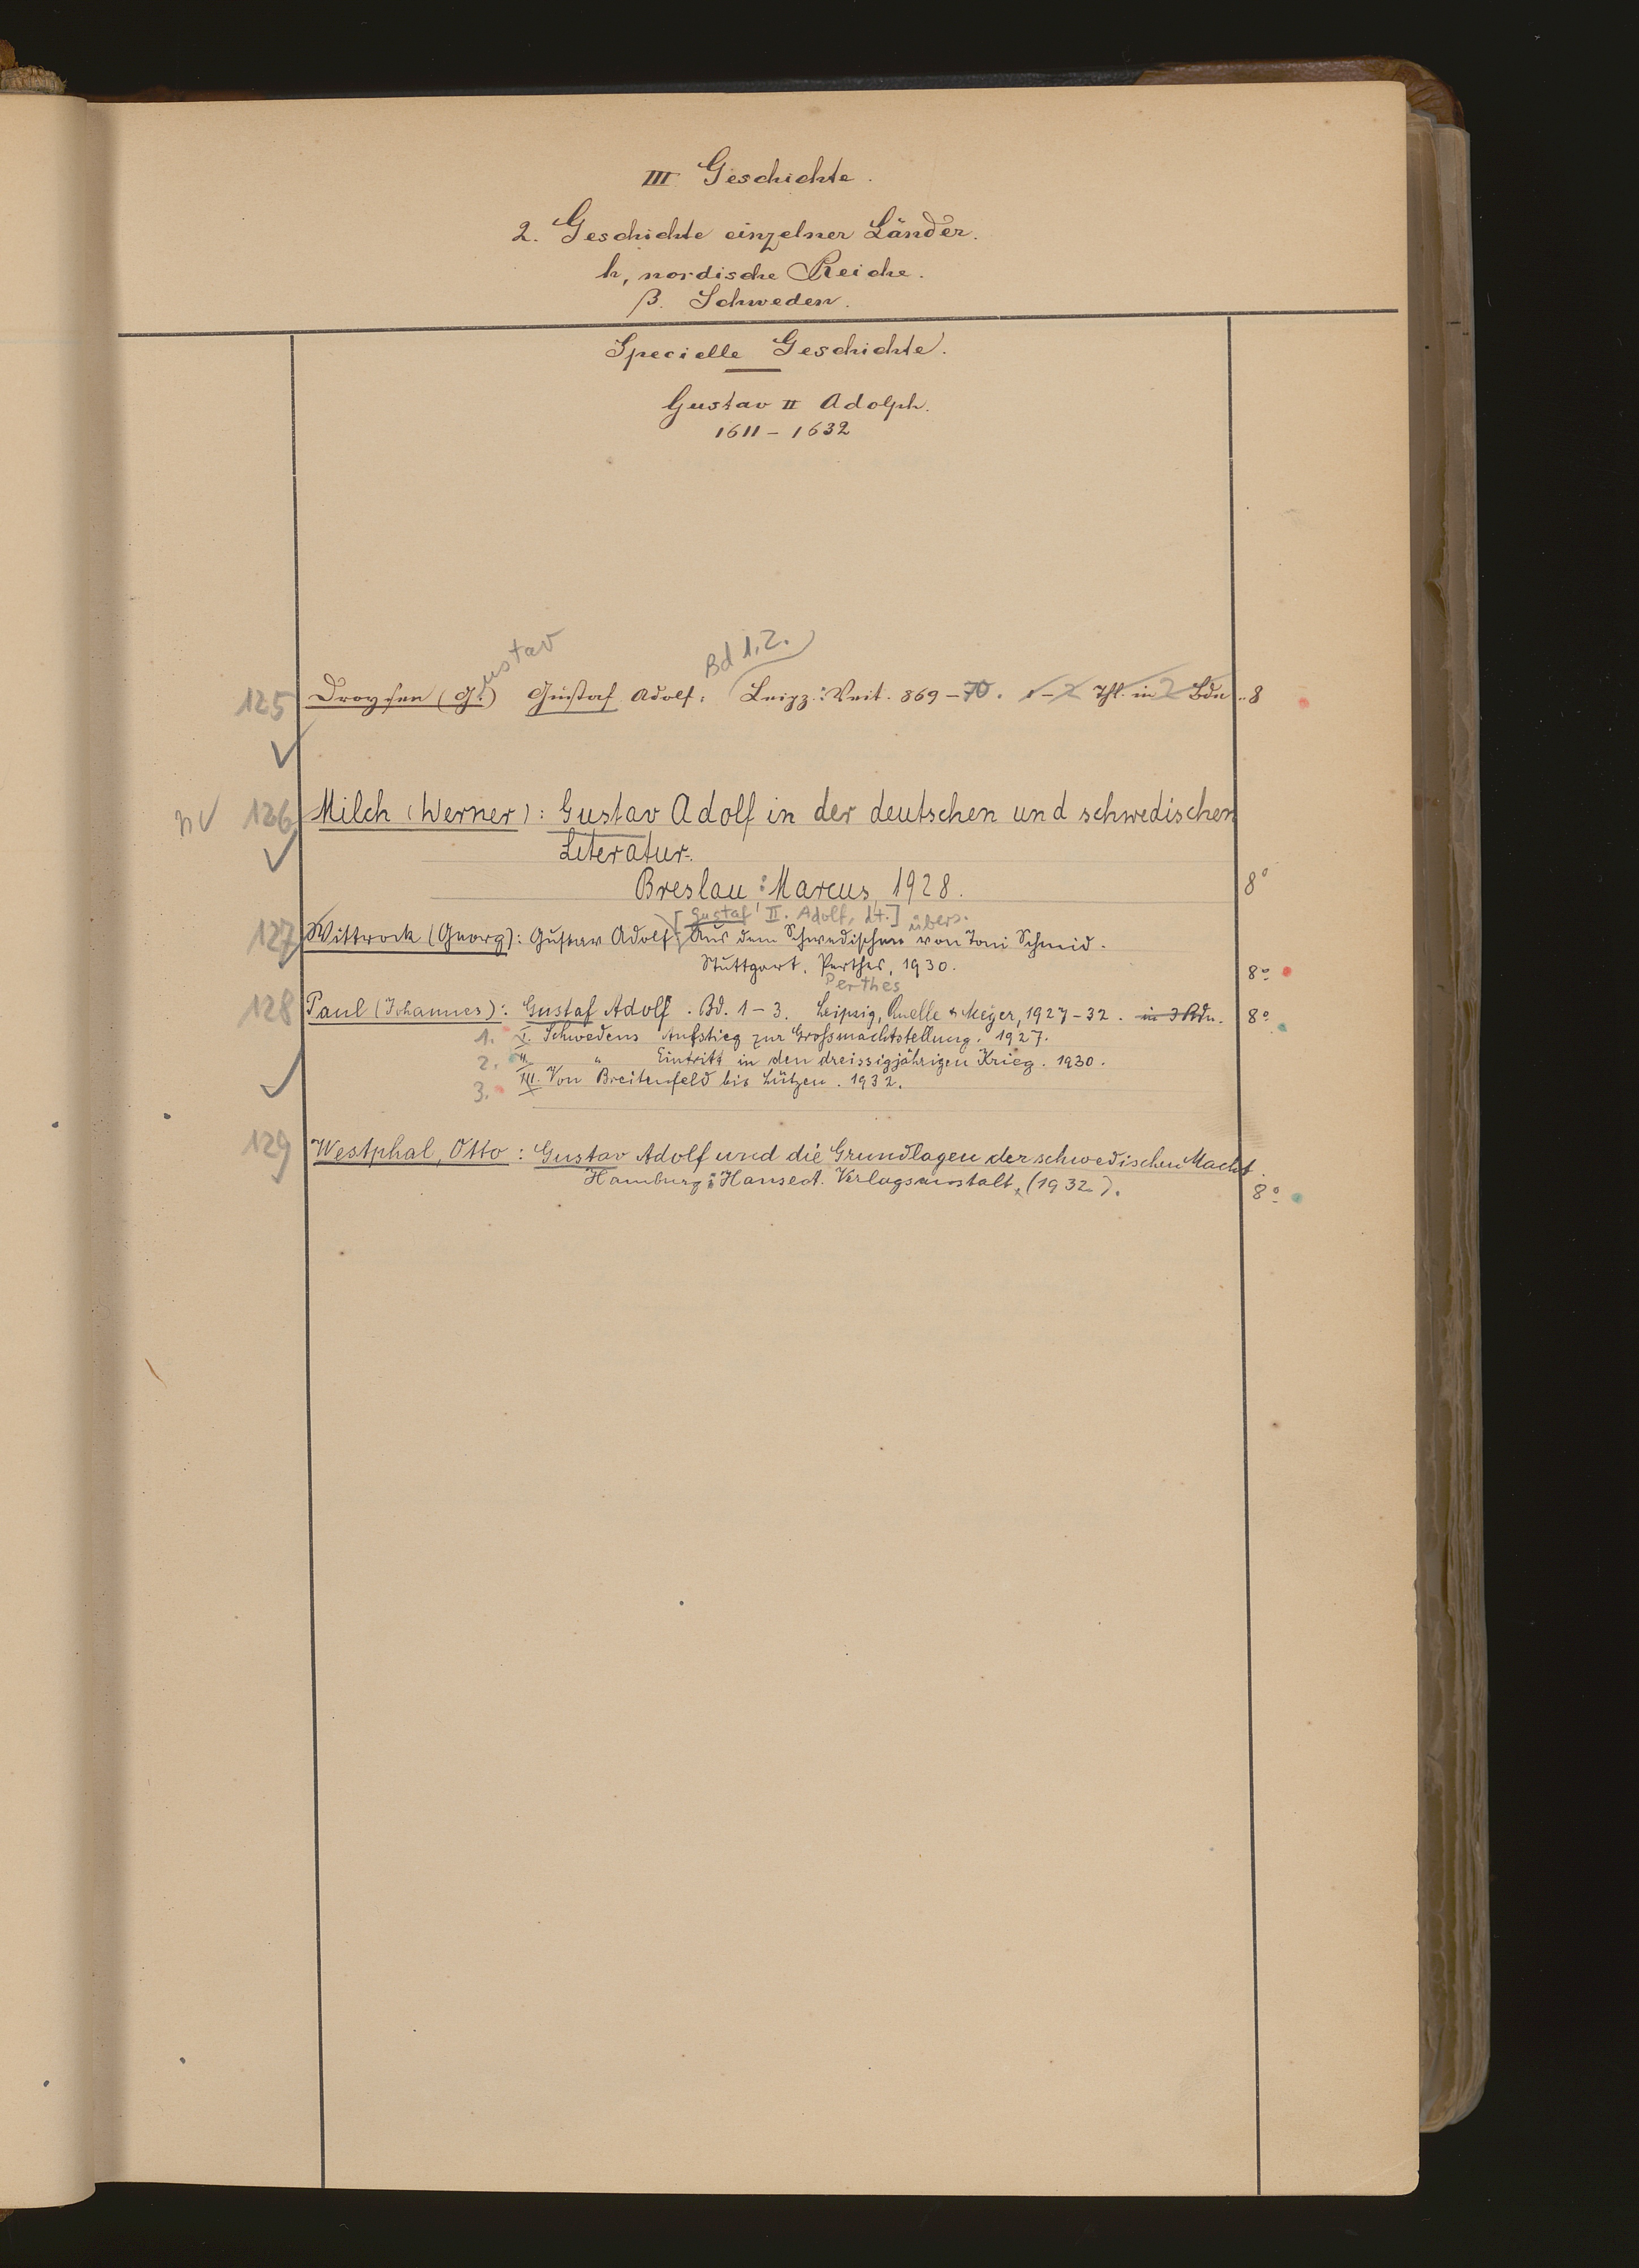 III Geschichte.
2. Geschichte einzelner Länder.
h, nordische Reiche.
β. Schweden.
Specielle Geschichte.
Gustav II Adolph.
1611 – 1632
ustav
Bd 1.2.
125 Droysen (G.) Gustaf Adolf. Leipz.: Veit. 869 – 70. 1 – 2 Thl. in 2 Bdn. 8
nv 126 Milch (Werner): Gustav Adolf in der deutschen und schwedischen
Literatur.
Breslau: Marcus, 1928. 8°
[Gustaf II. Adolf, dt.] übers.
127 Wittrock (Georg): Gustav Adolf. Aus dem Schwedischen von Toni Schmid.
Stuttgart, Perthes, 1930. 8°
Perthes
128 Paul (Johannes): Gustaf Adolf. Bd. 1 – 3. Leipzig, Quelle & Meyer, 1927 – 32. in 3 Bdn. 8°
1. I. Schwedens Aufstieg zur Grossmachtstellung. 1927.
2. II. " Eintritt in den dreissigjährigen Krieg. 1930.
3. III. Von Breitenfeld bis Lützen. 1932.
129 Westphal, Otto: Gustav Adolf und die Grundlagen der schwedischen Macht.
Hamburg: Hanseat. Verlagsanstalt, (1932). 8°